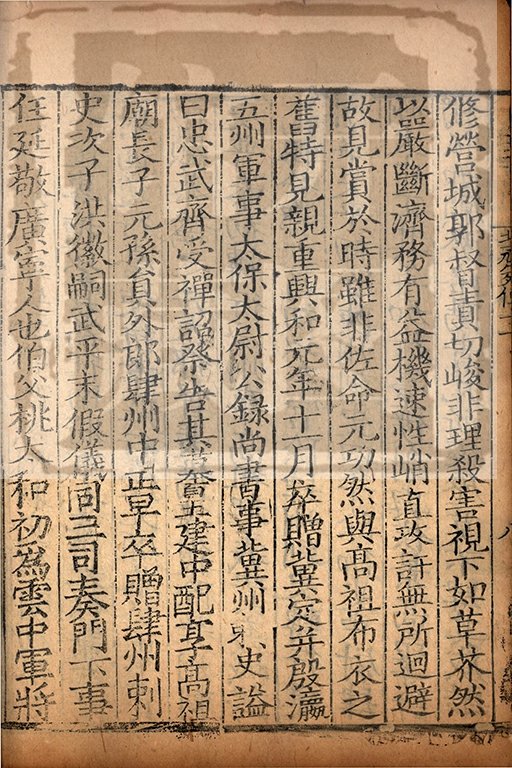 修營城郭督責切峻非理殺害視下如草芥然
以嚴斷濟務有益機速性峭直攻訐無所迴避
故見賞於時雖非佐命元功然與高祖布衣之
舊特見親重興和元年十一月卒贈冀定并殷瀛
五州軍事太保太尉公録尚書事冀州刾史謚
曰忠武齊受禪詔祭告其墓皇建中配享高祖
廟長子元孫貟外郎肆州中正早卒贈肆州刺
史次子洪徽嗣武平末假儀同三司奏門下事
任延敬廣寧人也伯父桃太和初爲雲中軍將